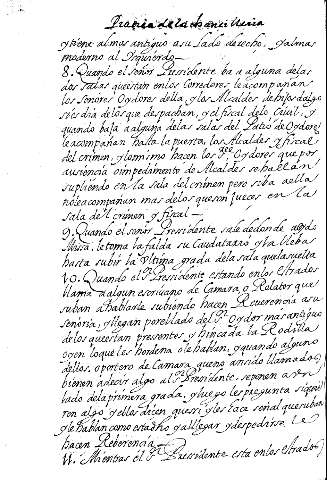 Practica de la chancilleria
y tiene al mas antiguo a su lado derecho, y al mas
moderno al Izquierdo
8. Quando el señor Presidente ba a alguna de las
dos salas que estan en los Corredores le acompañan
los Señores Oydores della, y los Alcaldes de hijos dalgo
si es dia de los que despachan, y el fiscal de lo Ciuil, y
quando baja a alguna de las salas del Patio de Oydores
le acompañan hasta la puerta, los Alcaldes y fiscal
del crimen, y lo mismo hacen los Sres Oydores que por
ausiencia o impedimento de Alcaldes se hallan
supliendo en la sala del crimen pero si ba a ella
no le acompañan mas de los que son jueces en la
sala del crimen y fiscal
9. Quando el señor Presidente sale de donde a oydo
Missa, le toma la falda su Caudatario y la lleba
hasta subir la Vltima grada de la sala que la suelta
10. Quando el Sr Presidente estando en los Estrados
llama a algun escriuano de Camara, o Relator que
suban a hablarle subiendo hacen Reverencia a su
señoria, y llegan por el lado del Sr Oydor mas antiguo
de los que estan presentes y hincada la Rodilla
oyen lo que les hordena o le hablan, y quando alguno
dellos, o portero de Camara que no an sido llamados
bienen a decir algo al Sr Presidente se ponen a un
lado de la primera grada, y luego les pregunta si quie
ren algo y ellos dicen que si y les hace señal que suban
y le hablan como esta dho y al llegar y despedirse le
hacen Reberencia
11. Mientras el Sr Presidente esta en los Estrados